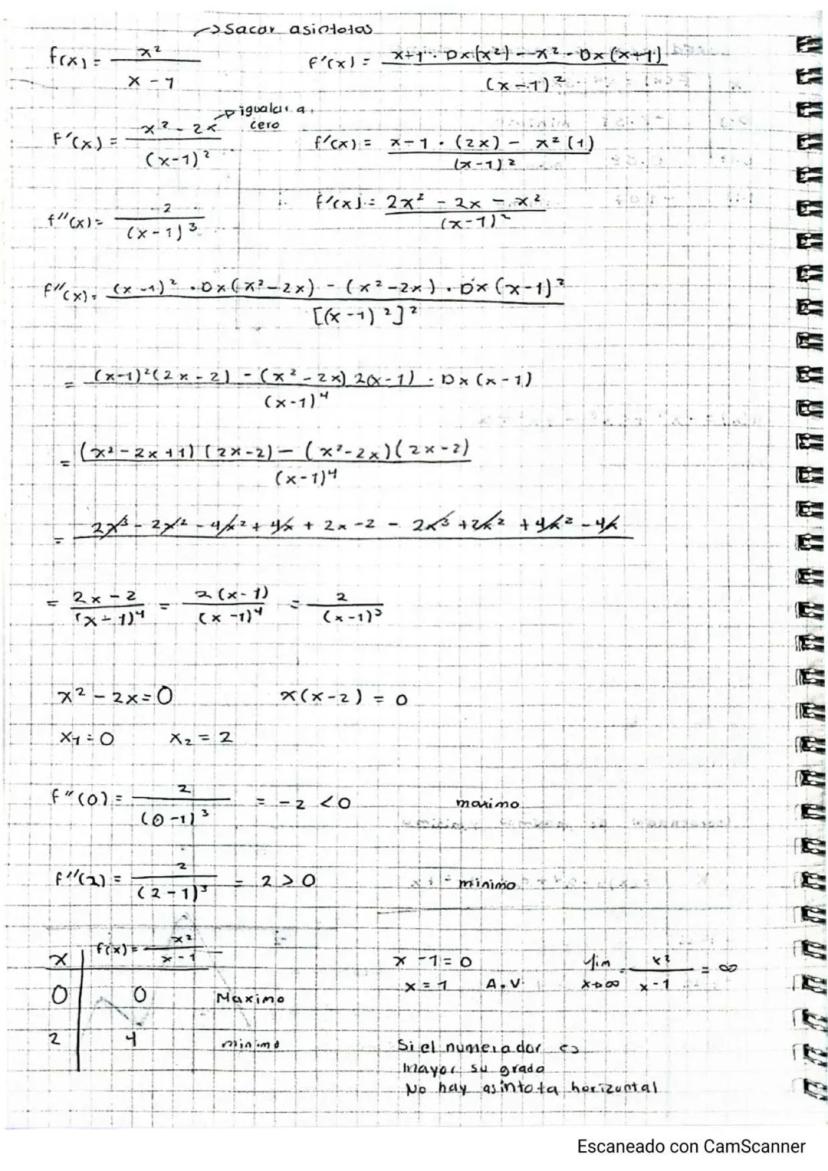 → Sacar asintotas
f(x) = x² / x - 1
f'(x) = x+1 · Dx(x²) - x² - Dx(x+1) / (x-1)²
f'(x) = x² - 2x / (x-1)² → igualar a cero
f'(x) = x-1 · (2x) - x²(1) / (x-1)²
f''(x) = 2 / (x-1)³
f'(x) = 2x² - 2x - x² / (x-1)²
f''(x) = (x-1)² · Dx(x²-2x) - (x²-2x) · Dx(x-1)² / [(x-1)²]²
= (x-1)²(2x-2) - (x²-2x) 2(x-1) · Dx(x-1) / (x-1)⁴
= (x²-2x+1)(2x-2) - (x²-2x)(2x-2) / (x-1)⁴
= 2x³ - 2x² - 4x² + 4x + 2x - 2 - 2x³ + 2x² + 4x² - 4x
= 2x - 2 / (x-1)⁴ = 2(x-1) / (x-1)⁴ = 2 / (x-1)³
x² - 2x = 0 x(x-2) = 0
x1 = 0 x2 = 2
f''(0) = 2 / (0-1)³ = -2 < 0 maximo
f''(2) = 2 / (2-1)³ = 2 > 0 minimo
x f(x) = x² / x - 1
0 0 Maximo
2 4 minimo
x - 1 = 0
x = 1 A.V.
lim x→∞ x² / x-1 = ∞
Si el numerador es
mayor su grado
No hay asintota horizontal
Escaneado con CamScanner